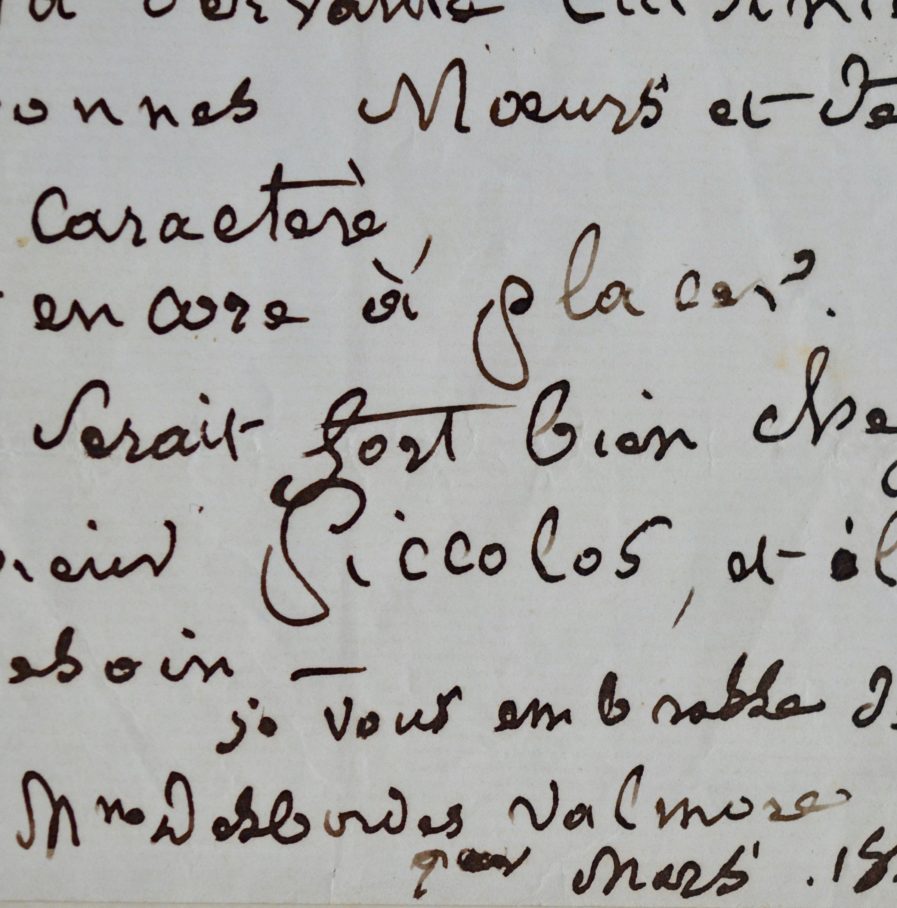 la servante cuisini
onnes Mœurs et de
Caractère,
encore à placer.
Serait fort bien chez
sieur Piccolos, et il
esoin —
je vous embrasse d
Mme Desbordes Valmore
Mars .18